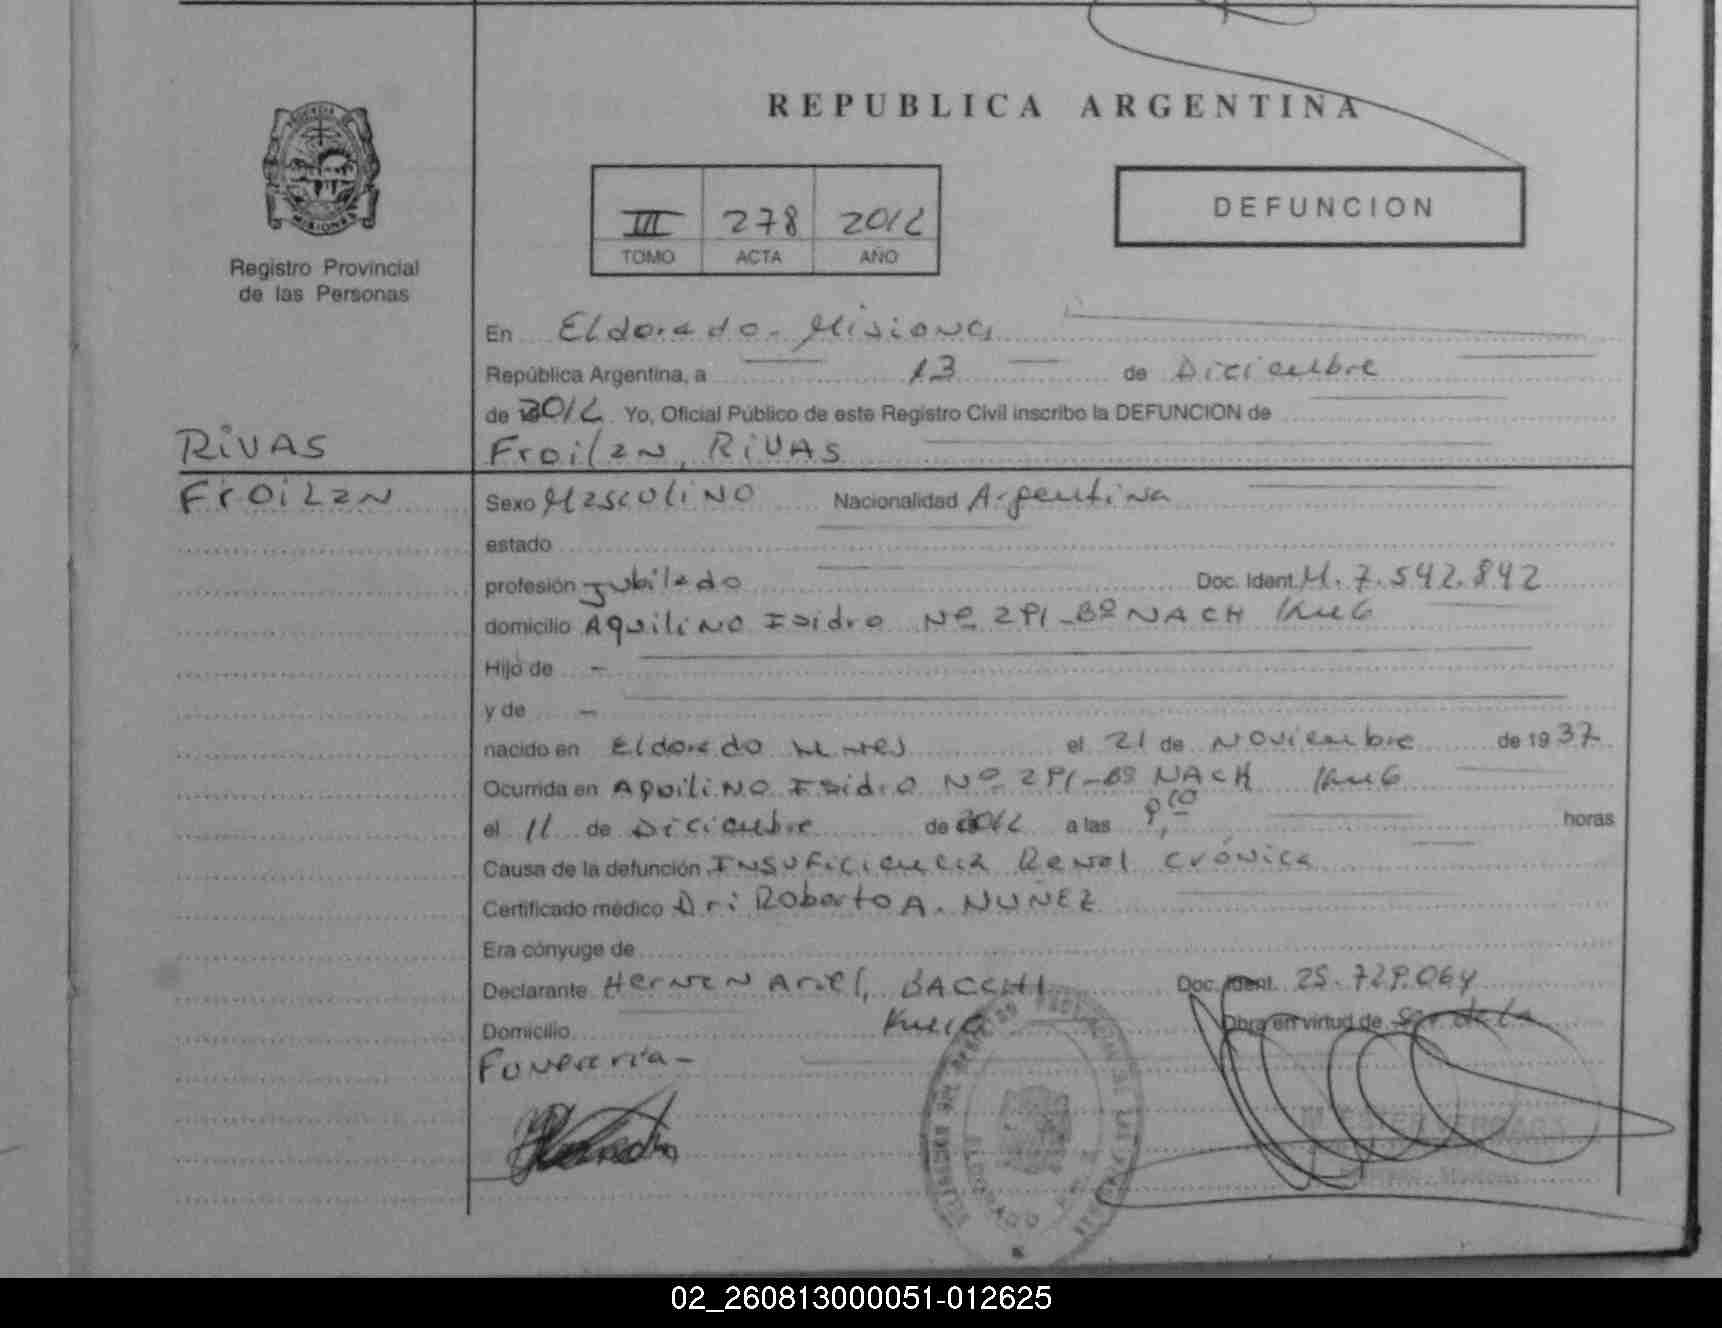 REPUBLICA ARGENTINA
PROVINCIA DE
MISIONES
Registro Provincial
de las Personas
III 278 2012
TOMO ACTA AÑO
DEFUNCION
En Eldorado - Misiones
República Argentina, a 13 de Diciembre
de 2012 Yo, Oficial Público de este Registro Civil inscribo la DEFUNCION de
RIVAS
Froilan, RIVAS
FROILAN
Sexo Masculino Nacionalidad Argentina
estado
profesión Jubilado Doc. Ident. M. 7.542.842
domicilio Aquilino Isidro Nº 291 - Bº NACH
Hijo de -
y de -
nacido en Eldorado Mnes el 21 de Noviembre de 1937
Ocurrida en Aquilino Isidro Nº 291 - Bº NACH
el 11 de Diciembre de 2012 a las 9,10 horas
Causa de la defunción Insuficiencia Renal Crónica
Certificado médico Dr: Roberto A. NUÑEZ
Era cónyuge de
Declarante Hernan Ariel, BACCHI Doc. Ident. 25.729.064
Domicilio Obra en virtud de Ser. de la
Funeraria -
ELDORADO
02_260813000051-012625